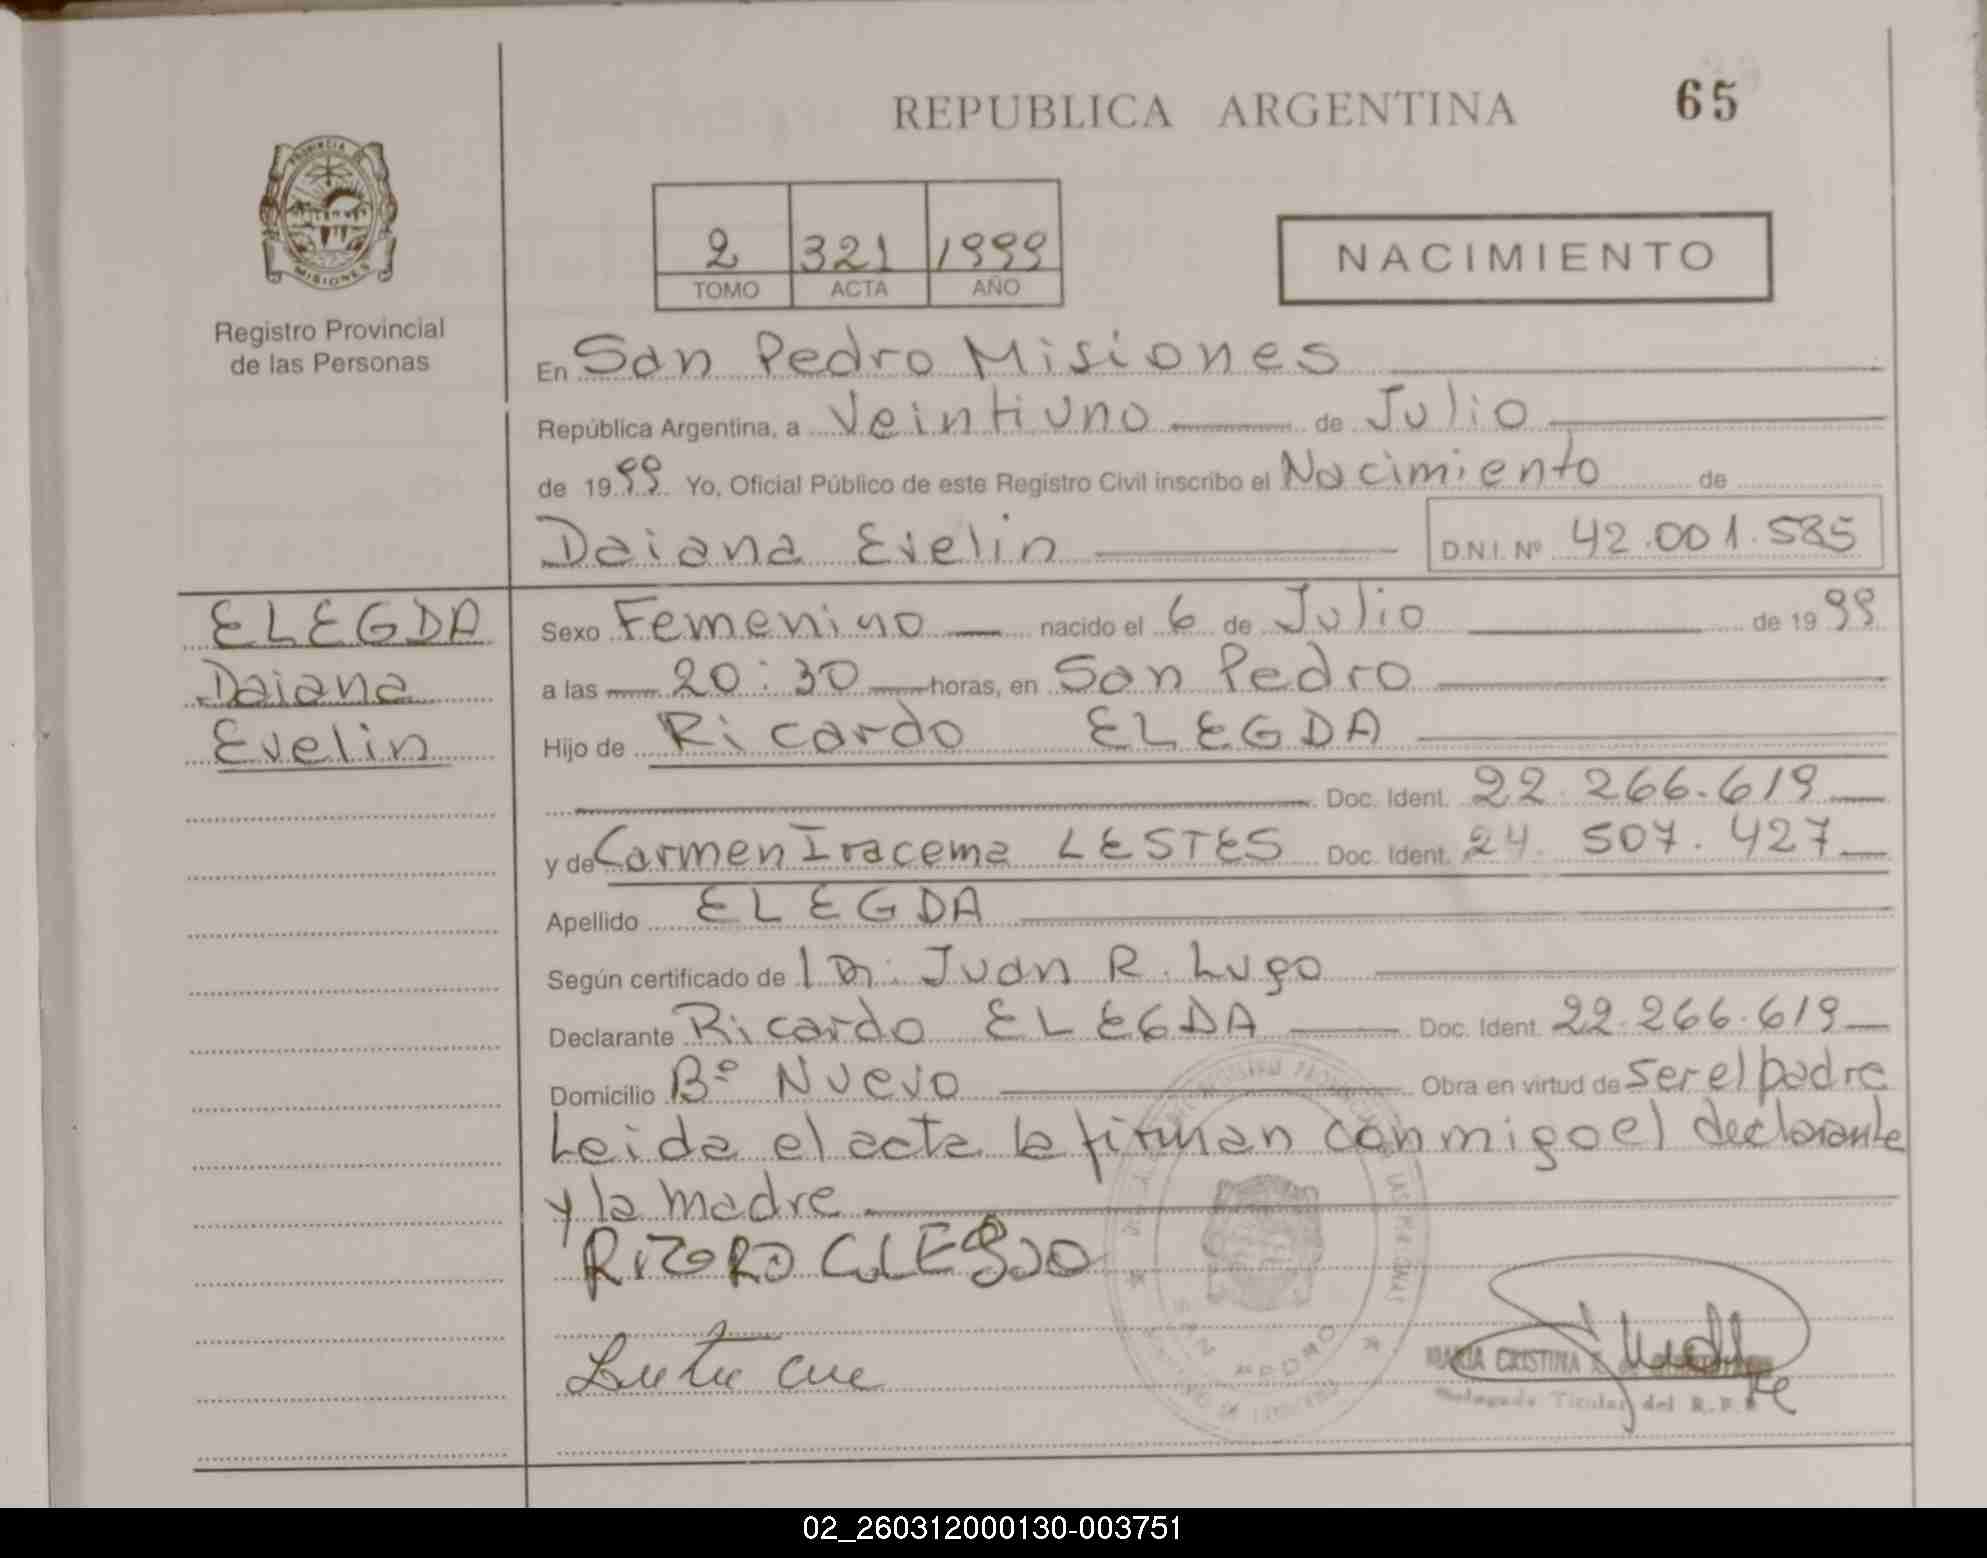 REPUBLICA ARGENTINA
65
PROVINCIA DE
MISIONES
Registro Provincial
de las Personas
2 321 1999
TOMO ACTA AÑO
NACIMIENTO
En San Pedro Misiones
República Argentina, a Veintiuno de Julio
de 1999 Yo, Oficial Público de este Registro Civil inscribo el Nacimiento de
Daiana Evelin D.N.I. Nº 42.001.585
ELEGDA
Daiana
Evelin
Sexo Femenino nacido el 6 de Julio de 1999
a las 20:30 horas, en San Pedro
Hijo de Ricardo ELEGDA
Doc. Ident. 22.266.619
y de Carmen Iracema LESTES Doc. Ident. 24.507.427
Apellido ELEGDA
Según certificado de Dr. Juan R. Lugo
Declarante Ricardo ELEGDA Doc. Ident. 22.266.619
Domicilio Bº Nuevo Obra en virtud de ser el padre
Leida el acta la firman conmigo el declarante
y la madre
MARIA CRISTINA
Delegada Titular del R.P.P
SAN PEDRO
02_260312000130-003751